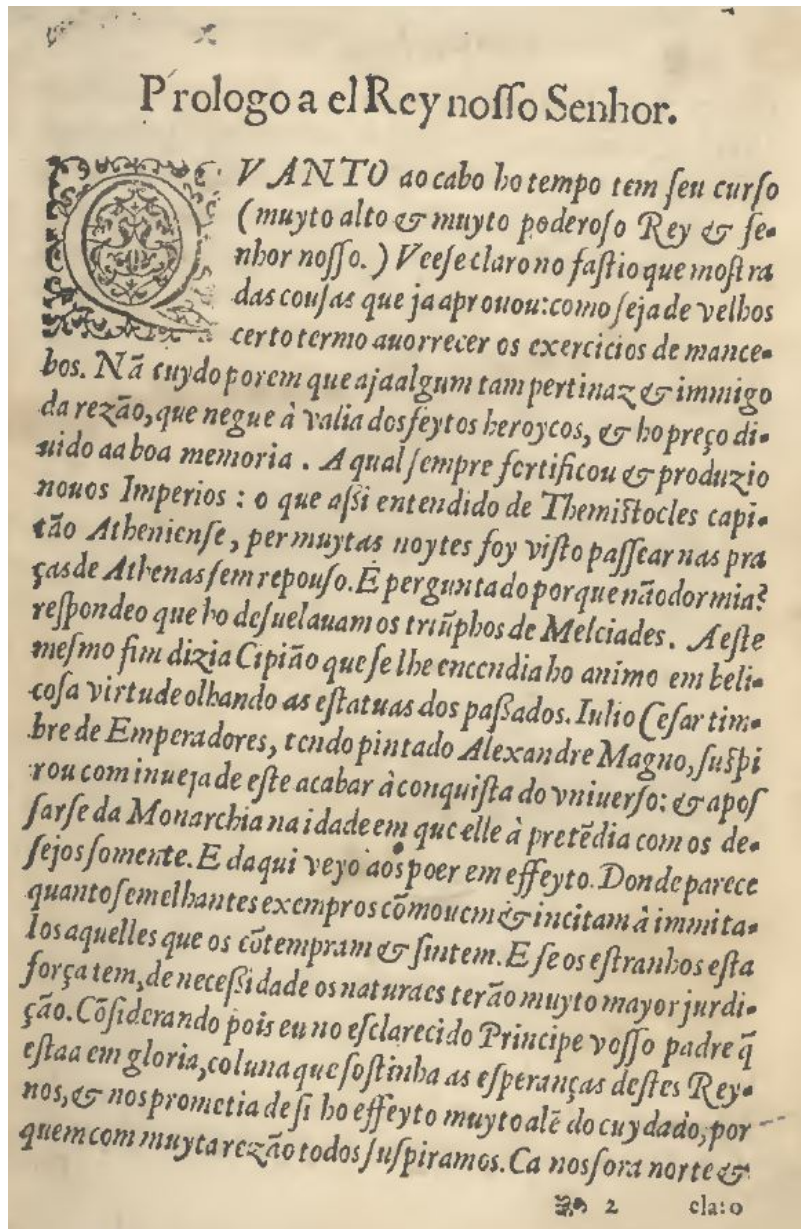 Prologo a el Rey nosso Senhor.
QVANTO ao cabo ho tempo tem seu curso
(muyto alto & muyto poderoso Rey & se-
nhor nosso.) Veese claro no fastio que mostra
das cousas que ja aprouou: como seja de velhos
certo termo auorrecer os exercicios de mance-
bos. Nã cuydo porem que aja algum tam pertinaz & immigo
da rezão, que negue à valia dos feytos heroycos, & ho preço di-
uido aa boa memoria. A qual sempre fortificou & produzio
nouos Imperios: o que assi entendido de Themistocles capi-
tão Atheniense, per muytas noytes foy visto passear nas pra
ças de Athenas sem repouso. E perguntado porque não dormia?
respondeo que ho desuelauam os triũphos de Melciades. A este
mesmo fim dizia Cipião que se lhe encendia ho animo em beli-
cosa virtude olhando as estatuas dos passados. Iulio Cesar tim-
bre de Emperadores, tendo pintado Alexandre Magno, suspi
rou com inueja de este acabar à conquista do vniuerso: & apos
sarse da Monarchia na idade em que elle à pretẽdia com os de-
sejos somente. E daqui veyo aos poer em effeyto. Donde parece
quanto semelhantes exempros cõmouem & incitam à immita-
los aquelles que os cõtempram & sintem. E se os estranhos esta
força tem, de necessidade os naturaes terão muyto mayor jurdi-
ção. Cõsiderando pois eu no esclarecido Principe vosso padre q̃
estaa em gloria, coluna que sostinha as esperanças destes Rey-
nos, & nos prometia de si ho effeyto muyto alẽ do cuydado, por
quem com muyta rezão todos suspiramos. Ca nos fora norte &
2 claro